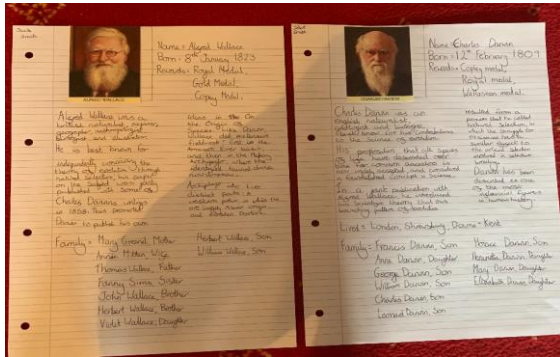 ALFRED WALLACE
Name = Alfred Wallace
Born = 8th January 1823
Rewards = Royal Medal,
Gold Medal
Copley Medal.
Alfred Wallace was a
British naturalist, explorer,
geographer, anthropologist,
biologist and illustrator.
He is best known for
independently conceiving the
theory of evolution through
natural selection; his paper
on the subject was jointly
published with some of
Charles Darwins writings
in 1858. This prompted
Darwin to publish his own
ideas in the On
the Origin of
Species. Like Darwin,
Wallace did extensive
fieldwork; first in the
Amazon River basin,
and then in the Malay
Archipelago, where he
identified faunal divide
Family = Mary Greenell, Mother
Annie Mitten, Wife
Thomas Wallace, Father
Fanny Sims, Sister
John Wallace, Brother
Herbert Wallace, Brother
Violet Wallace, Daughter
Herbert Wallace, Son
William Wallace, Son
CHARLES DARWIN
Name = Charles Darwin
Born = 12th February 1809
Rewards = Copley medal,
Royal medal,
Wollaston medal
Charles Darwin was an
English naturalist,
geologist and biologist,
best known for his contributions
to the science of evolution.
His proposition that all species
of life have descended over
time from common ancestors is
now widely accepted, and considered
a foundational concept in science.
In a joint publication with
Alfred Wallace, he introduced
his scientific theory that this
branching pattern of evolution
resulted from a
process that he called
natural selection, in
which the struggle for
existence has a
similar effect to
the artificial selection
involved in selective
breeding.
Darwin has been
described as one
of the most
influential figures
in human history.
Lived = London, Shrewsbury, Downe - Kent
Family = Francis Darwin, Son
Anne Darwin, Daughter
George Darwin, Son
William Darwin, Son
Charles Darwin, Son
Leonard Darwin, Son
Horace Darwin, Son
Henrietta Darwin, Daughter
Mary Darwin, Daughter
Elizabeth Darwin, Daughter